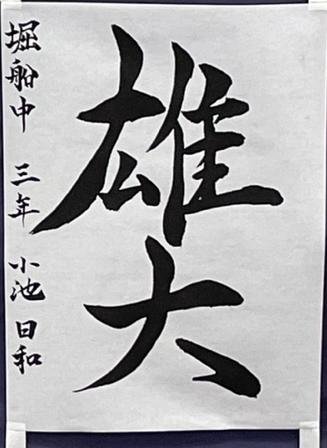 雄大
堀船中 三年 小池日和